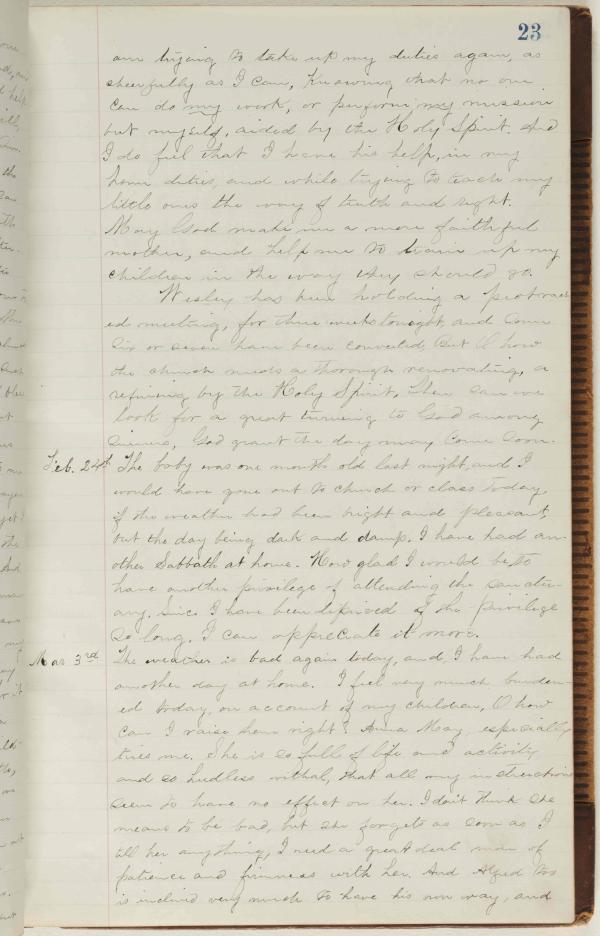 23
am trying to take up my duties again, as
cheerfully as I can, knowing that no one
can do my work, or perform my mission
but myself, aided by the Holy Spirit. And
I do feel that I have his help, in my
home duties, and while trying to teach my
little ones the way of truth and right.
May God make me a more faithful
mother, and help me to train up my
children in the way they should go.
Wesley has been holding a protract
ed meeting, for three weeks tonight, and some
six or seven have been converted, But O how
the church needs a thorough renovating, a
refining by the Holy Spirit, then can we
look for a great turning to God among
sinners, God grant the day may come soon.
Feb. 24th The baby was one month old last night, and I
would have gone out to church or class today,
if the weather had been bright and pleasant,
but the day being dark and damp, I have had an-
other Sabbath at home. How glad I would be to
have another privilege of attending the sanctu-
ary. Since I have been deprived of the privilege
so long, I can appreciate it more.
Mar 3rd The weather is bad again today, and, I have had
another day at home. I feel very much burden-
ed today, on account of my children, O how
can I raise them right? Anna May, especially
tires me. She is so full of life and activity
and so heedless withal, that all my instructions
seem to have no effect on her. I don't think she
means to be bad, but she forgets as soon as I
tell her anything, I need a great deal more of
patience and firmness with her. And too
is inclined very much to have his own way, and